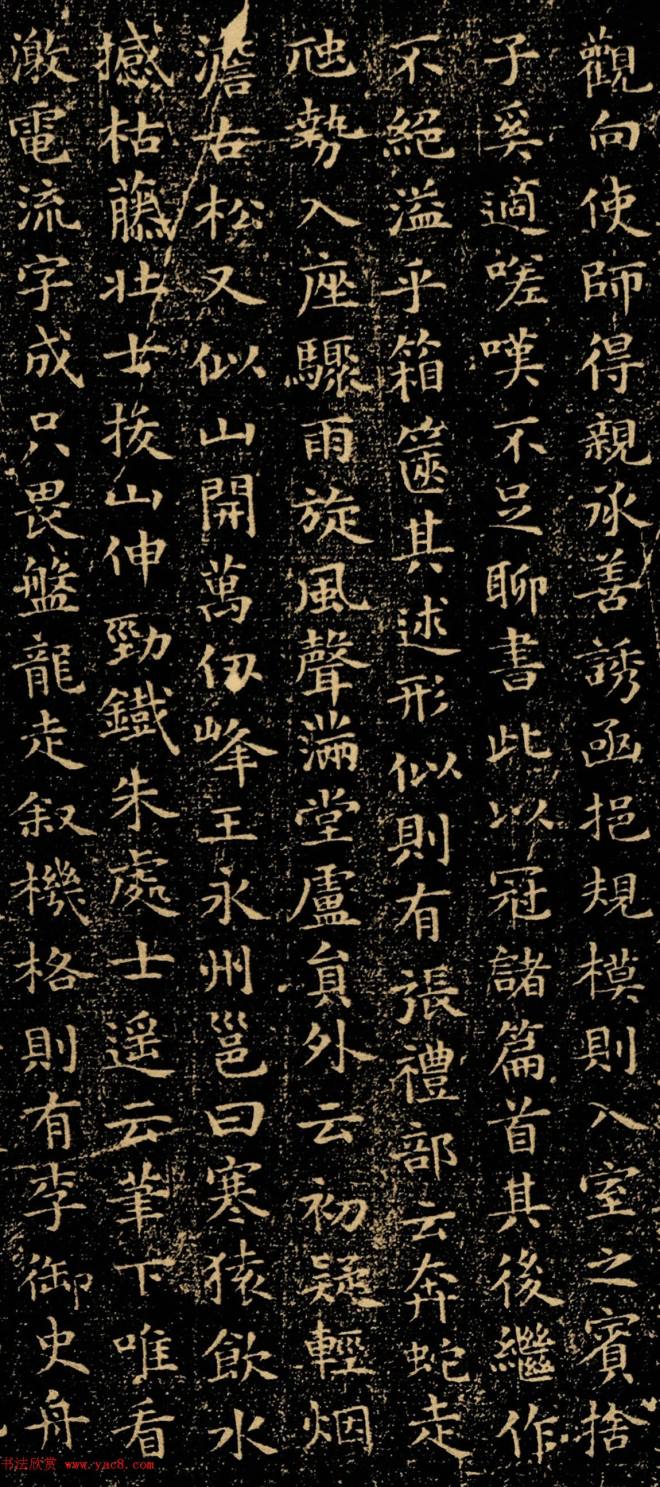 觀向使師得親承善誘函挹規模則入室之賓捨
子奚適嗟嘆不足聊書此以冠諸篇首其後繼作
不絕溢乎箱篋其述形似則有張禮部云奔蛇走
虺勢入座驟雨旋風聲滿堂盧貟外云初疑輕烟
澹古松又似山開萬仞峰王永州邕曰寒猿飲水
撼枯藤壯士拔山伸勁鐵朱處士遥云筆下唯看
激電流字成只畏盤龍走叙機格則有李御史舟
书法欣赏 www.yac8.com